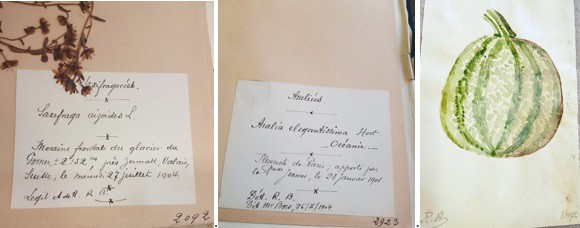 Saxifragacées.
Saxifraga aizoides L.
Moraine frontale du glacier du
Gorner ± 2152 m, près Zermatt, Valais,
Suisse, le mercredi 27 juillet 1904.
Legit A det. R. B.
2092
Araliées.
Aralia elegantissima Hort.
Océanie
Fleuriste de Paris; apporté par
le 28 janvier 1904
Dét. R. B.
2923
R. B.